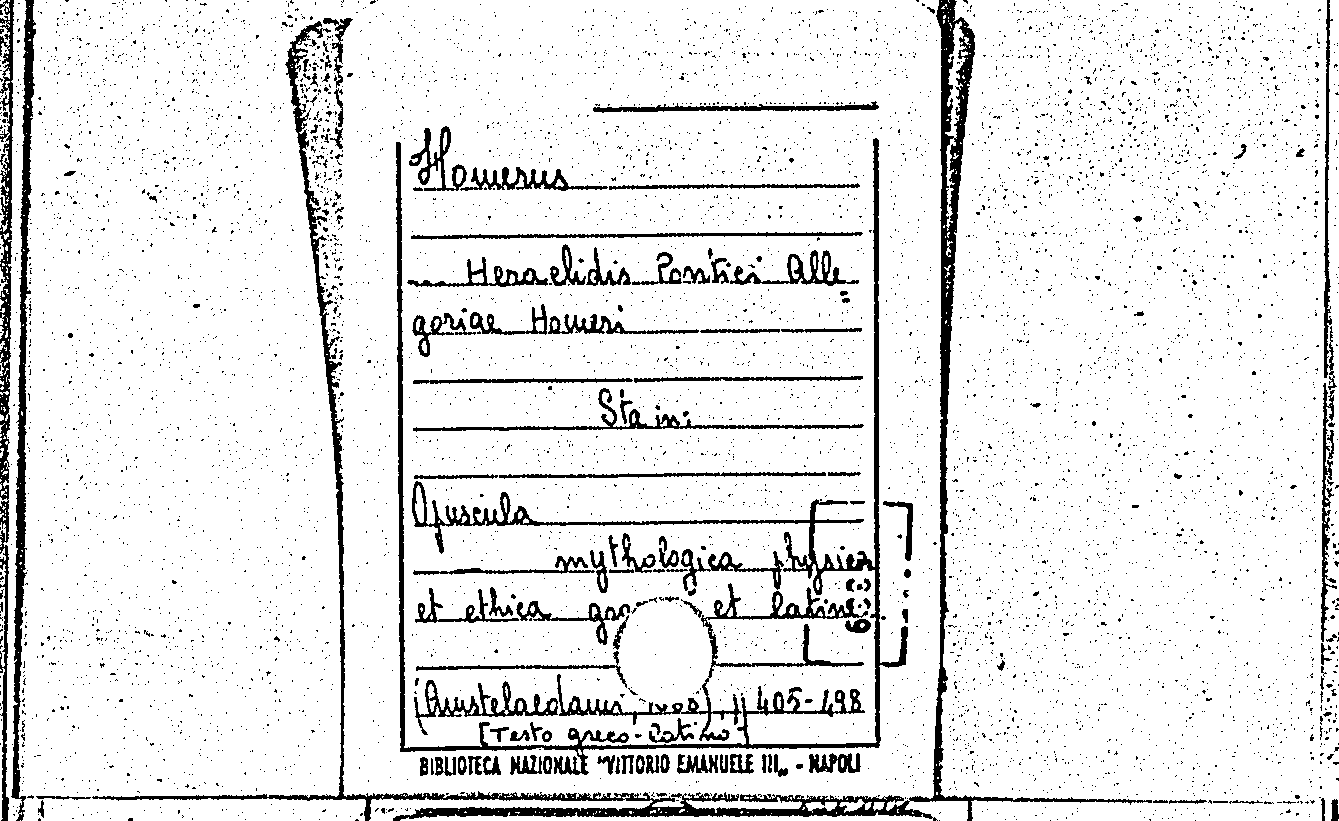 Homerus
... Heraclidis Pontici Alle=
goriae Homeri
Sta in:
Opuscula
mythologica physica
et ethica et latine
(Amstelaedami, ), 405-498
[Testo greco-latino]
BIBLIOTECA NAZIONALE "VITTORIO EMANUELE III„ - NAPOLI